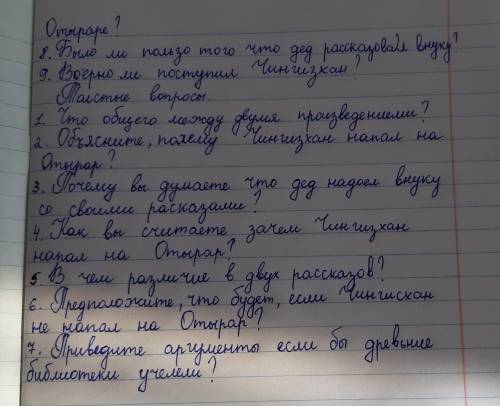 Отыраре?
8. Было ли пользо того что дед рассказовал внуку?
9. Воерно ли поступил Чингизхан?
Талстые вопросы.
1. Что общего между двумя произведениеми?
2. Объясните, почему Чингизхан напал на
Отырар?
3. Почему вы думаете что дед надоел внуку
со своими расказами?
4. Как вы считаете зачем Чингизхан
напал на Отырар?
5. В чем различие в двух рассказов?
6. Предположите, что будет, если Чингисхан
не напал на Отырар?
7. Приведите аргументы если бы древьние
библиотеки учелели?